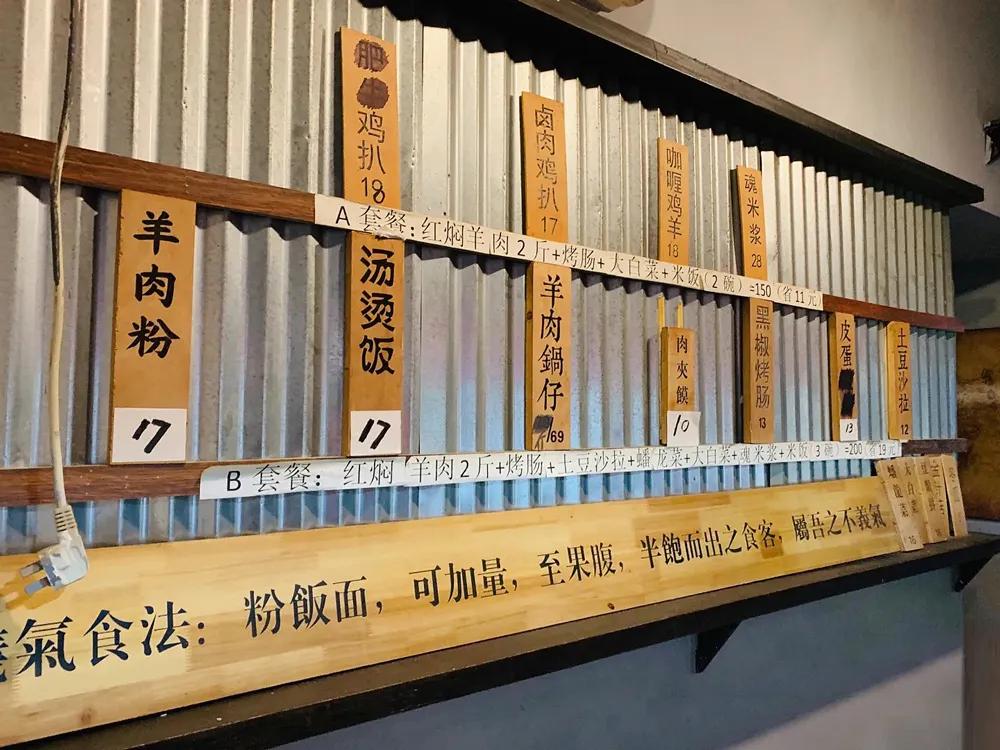 肥牛鸡扒
18
卤肉鸡扒
17
咖喱鸡羊
18
魂米浆
28
A 套餐:红焖羊肉2斤+烤肠+大白菜+米饭(2碗)=150(省11元)
羊肉粉
17
汤烫饭
17
羊肉鍋仔
69
肉夾饃
10
黑椒烤肠
13
皮蛋
13
土豆沙拉
12
B 套餐: 红焖 羊肉2斤+烤肠+土豆沙拉+蟠龙菜+大白菜+魂米浆+米饭(3碗)=200(省19元)
氣食法: 粉飯面, 可加量, 至果腹, 半飽而出之食客, 屬吾之不義氣